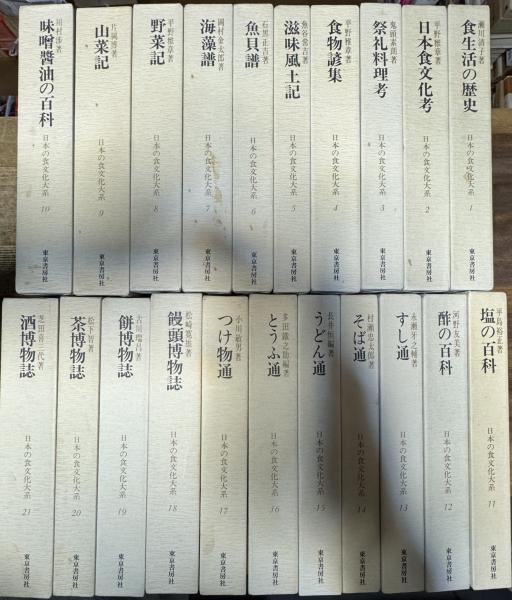 食生活の歴史
瀬川清子著
日本の食文化大系 1
東京書房社
日本食文化考
平野雅章著
日本の食文化大系 2
東京書房社
祭礼料理考
鬼頭素朗著
日本の食文化大系 3
東京書房社
食物諺集
平野雅章著
日本の食文化大系 4
東京書房社
滋味風土記
魚谷常吉著
日本の食文化大系 5
東京書房社
魚貝譜
石黒正吉著
日本の食文化大系 6
東京書房社
海藻譜
岡村金太郎著
日本の食文化大系 7
東京書房社
野菜記
平野雅章著
日本の食文化大系 8
東京書房社
山菜記
片岡博著
日本の食文化大系 9
東京書房社
味噌醬油の百科
川村渉著
日本の食文化大系 10
東京書房社
塩の百科
平島裕正著
日本の食文化大系 11
東京書房社
酢の百科
河野友美著
日本の食文化大系 12
東京書房社
すし通
永瀬牙之輔著
日本の食文化大系 13
東京書房社
そば通
村瀬忠太郎著
日本の食文化大系 14
東京書房社
うどん通
長井恒編著
日本の食文化大系 15
東京書房社
とうふ通
多田鐵之助編著
日本の食文化大系 16
東京書房社
つけ物通
小川敏男著
日本の食文化大系 17
東京書房社
饅頭博物誌
松崎寛雄著
日本の食文化大系 18
東京書房社
餅博物誌
古川瑞昌著
日本の食文化大系 19
東京書房社
茶博物誌
松下智著
日本の食文化大系 20
東京書房社
酒博物誌
日本の食文化大系 21
東京書房社